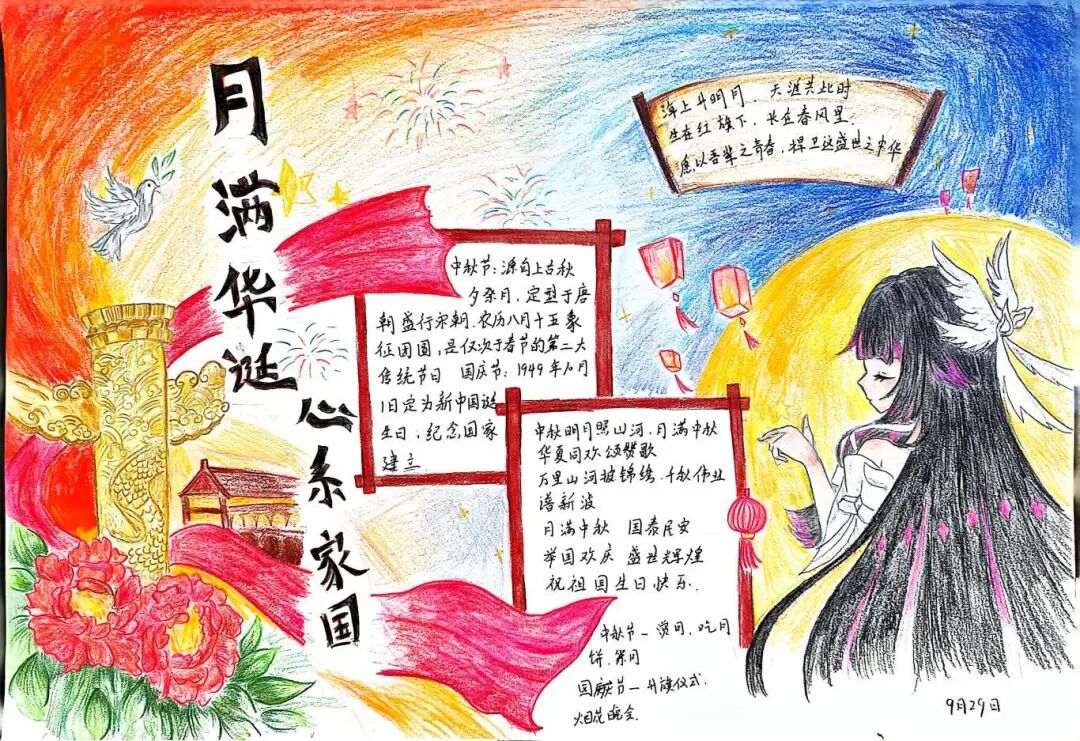 月满华诞
心系家国
海上升明月，天涯共此时
生在红旗下，长在春风里.
愿以吾辈之青春，捍卫这盛世之中华
中秋节：源自上古秋
夕祭月，定型于唐
朝盛行宋朝.农历八月十五象
征团圆，是仅次于春节的第二大
传统节日 国庆节：1949年10月
1日定为新中国诞
生日，纪念国家
建立
中秋明月照山河，月满中秋
华夏同欢颂赞歌
万里山河披锦绣，千秋伟业
谱新波
月满中秋 国泰民安
举国欢庆 盛世辉煌
祝祖国生日快乐.
中秋节—赏月，吃月
饼，祭月
国庆节—升旗仪式.
烟花晚会.
9月29日